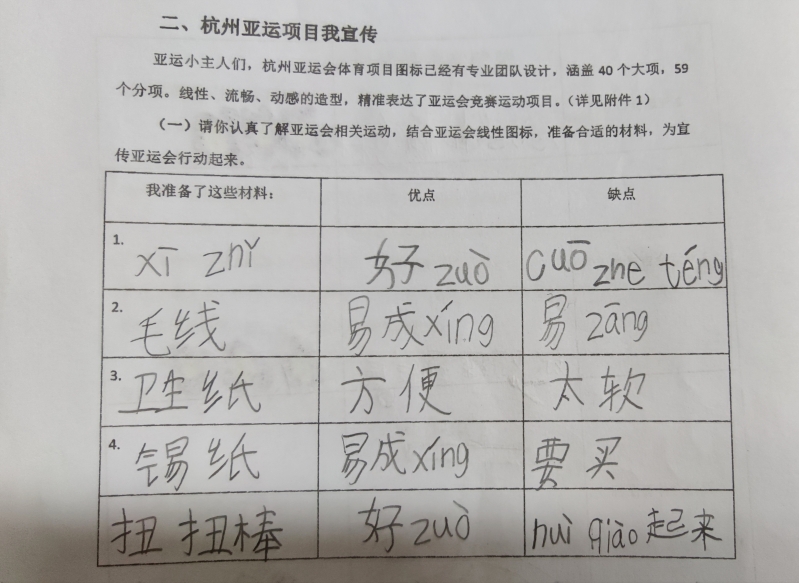 二、杭州亚运项目我宣传
亚运小主人们，杭州亚运会体育项目图标已经有专业团队设计，涵盖 40 个大项，59
个分项。线性、流畅、动感的造型，精准表达了亚运会竞赛运动项目。（详见附件 1）
（一）请你认真了解亚运会相关运动，结合亚运会线性图标，准备合适的材料，为宣
传亚运会行动起来。
我准备了这些材料： 优点 缺点
1. xī zhǐ 好 zuò cuō zhe téng
2. 毛线 易成xíng 易 zāng
3. 卫生纸 方便 太软
4. 锡纸 易成xíng 要买
扭扭棒 好 zuò huì qiào 起来